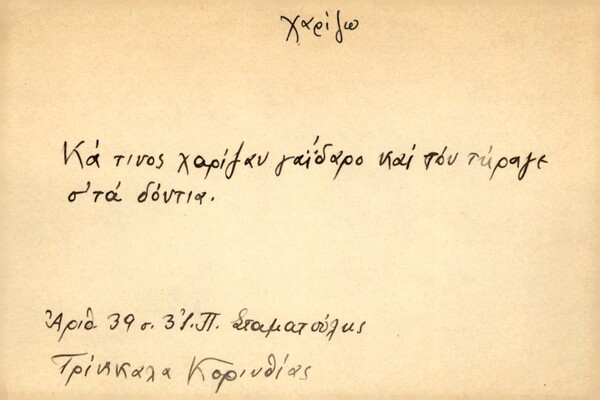 χαρίζω
Κά τινος χαρίζαν γαΐδαρο καί τόν τήραγε
σ'τά δόντια.
Ἀριθ. 39 σ. 31. Π. Σταματούλης
Τρίκκαλα Κορινθίας